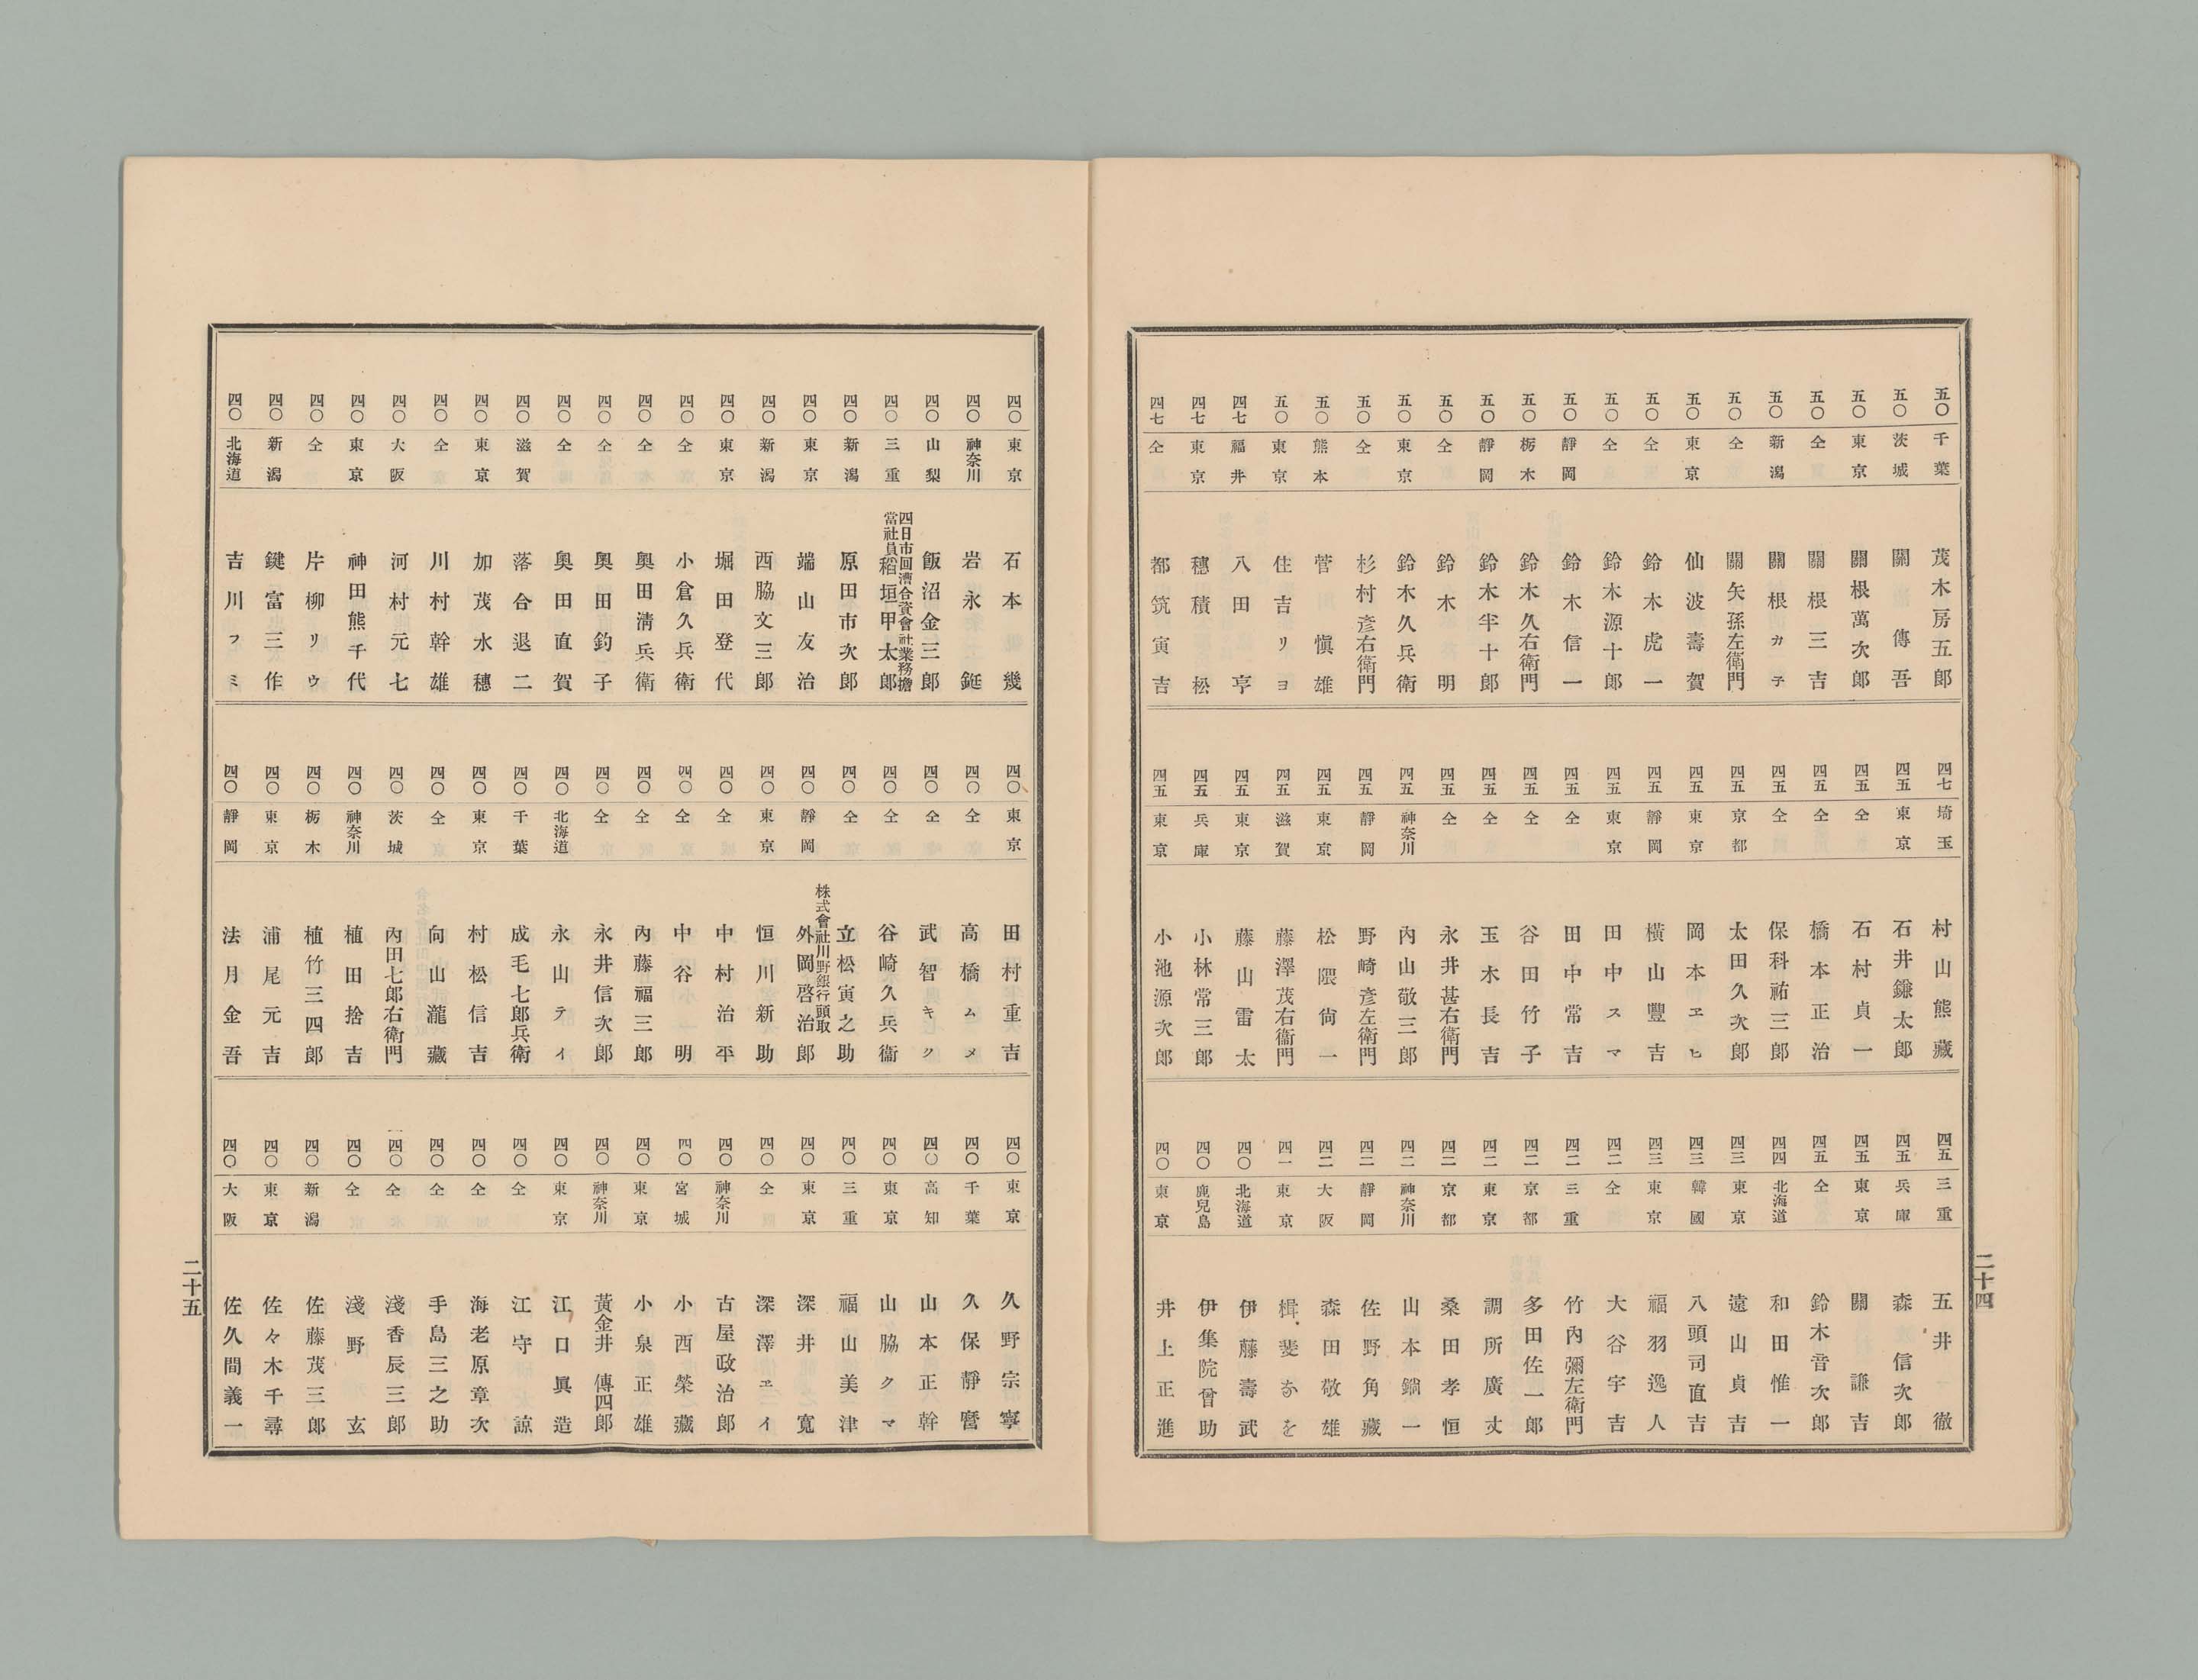 五〇 千葉 茂木房五郎
五〇 茨城 關傳吾
五〇 東京 關根萬次郎
五〇 仝 關根三吉
五〇 新潟 關根カ子
五〇 仝 關矢孫左衛門
五〇 東京 仙波壽賀
五〇 仝 鈴木虎一
五〇 仝 鈴木源十郎
五〇 靜岡 鈴木信一
五〇 栃木 鈴木久右衛門
五〇 靜岡 鈴木半十郎
五〇 仝 鈴木明
五〇 東京 鈴木久兵衛
五〇 仝 杉村彦右衛門
五〇 熊本 菅愼雄
五〇 東京 住吉リヨ
四七 福井 八田亨
四七 東京 穗積松
四七 仝 都筑寅吉
四七 埼玉 村山熊藏
四五 東京 石井鎌太郎
四五 仝 石村貞一
四五 仝 橋本正治
四五 仝 保科祐三郎
四五 京都 太田久次郎
四五 東京 岡本ヱヒ
四五 靜岡 横山豐吉
四五 東京 田中スマ
四五 仝 田中常吉
四五 仝 谷田竹子
四五 仝 玉木長吉
四五 仝 永井甚右衛門
四五 神奈川 內山敬三郎
四五 靜岡 野崎彦左衛門
四五 東京 松隈尙一
四五 滋賀 藤澤茂右衞門
四五 東京 藤山雷太
四五 兵庫 小林常三郎
四五 東京 小池源次郎
四五 三重 五井一徹
四五 兵庫 森信次郎
四五 東京 關謙吉
四五 仝 鈴木音次郎
四四 北海道 和田惟一
四三 東京 遠山貞吉
四三 韓國 八頭司直吉
四三 東京 福羽逸人
四二 仝 大谷宇吉
四二 三重 竹內彌左衛門
四二 京都 多田佐一郎
四二 東京 調所廣丈
四二 京都 桑田孝恒
四二 神奈川 山本鏑一
四二 靜岡 佐野角藏
四二 大阪 森田敬雄
四一 東京 揖斐なを
四〇 北海道 伊藤壽武
四〇 鹿兒島 伊集院曾助
四〇 東京 井上正進
二十四
四〇 東京 石本幾
四〇 神奈川 岩永鋌
四〇 山梨 飯沼金三郎
四〇 三重 四日市回漕合資會社業務擔當社員稻垣甲太郎
四〇 新潟 原田市次郎
四〇 東京 端山友治
四〇 新潟 西脇文三郎
四〇 東京 堀田登代
四〇 仝 小倉久兵衛
四〇 仝 奧田淸兵衛
四〇 仝 奧田鈞子
四〇 仝 奧田直賀
四〇 滋賀 落合退二
四〇 東京 加茂水穗
四〇 仝 川村幹雄
四〇 大阪 河村元七
四〇 東京 神田熊千代
四〇 仝 片柳リウ
四〇 新潟 鍵富三作
四〇 北海道 吉川フミ
四〇 東京 田村重吉
四〇 仝 高橋ムメ
四〇 仝 武智キク
四〇 仝 谷崎久兵衞
四〇 仝 立松寅之助
四〇 靜岡 株式會社川野銀行頭取外岡啓治郎
四〇 東京 恒川新助
四〇 仝 中村治平
四〇 仝 中谷小一明
四〇 仝 內藤福三郎
四〇 仝 永井信次郎
四〇 北海道 永山テイ
四〇 千葉 成毛七郎兵衛
四〇 東京 村松信吉
四〇 仝 向山瀧藏
四〇 茨城 內田七郎右衛門
四〇 神奈川 植田捨吉
四〇 栃木 植竹三四郎
四〇 東京 浦尾元吉
四〇 靜岡 法月金吾
四〇 東京 久野宗寧
四〇 千葉 久保靜麿
四〇 高知 山本正幹
四〇 東京 山脇クマ
四〇 三重 福山美津
四〇 東京 深井寬
四〇 仝 深澤ヱイ
四〇 神奈川 古屋政治郎
四〇 宮城 小西榮藏
四〇 東京 小泉正雄
四〇 神奈川 黃金井傳四郎
四〇 東京 江口眞造
四〇 仝 江守諒
四〇 仝 海老原章次
四〇 仝 手島三之助
四〇 仝 淺香辰三郎
四〇 仝 淺野玄
四〇 新潟 佐藤茂三郎
四〇 東京 佐々木千尋
四〇 大阪 佐久間義一
二十五